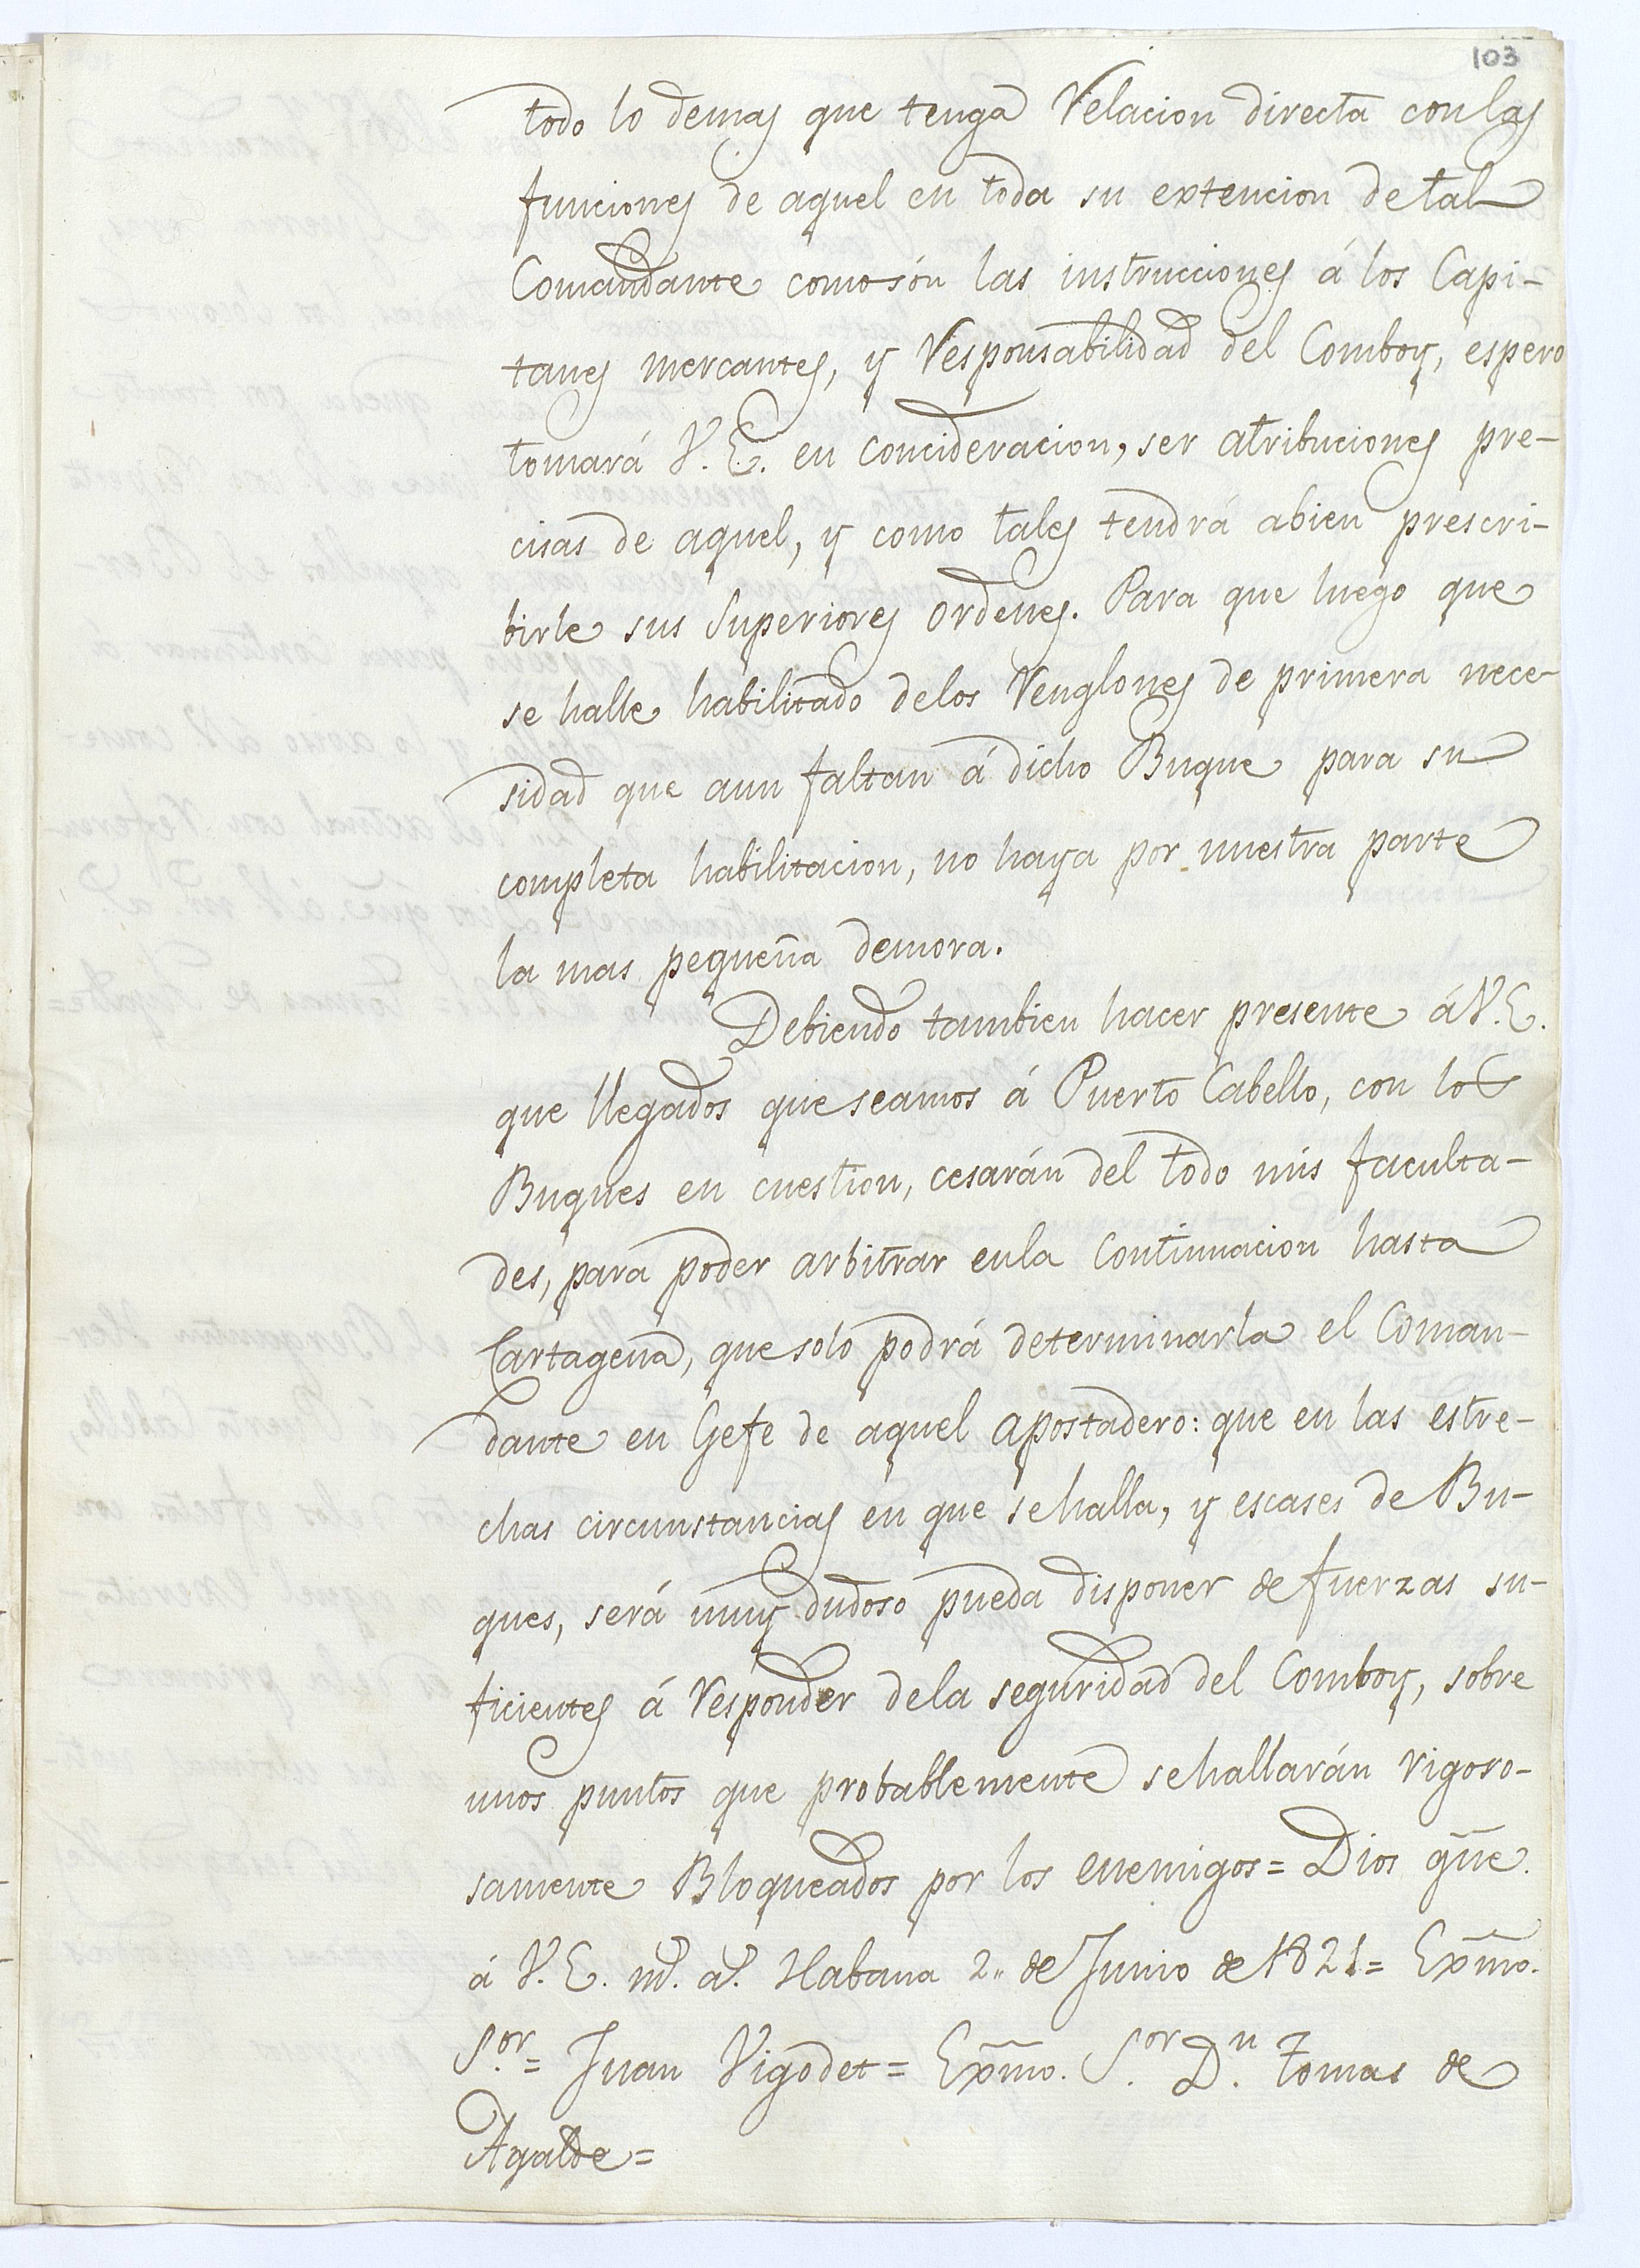 103
todo lo demas que tenga Relacion directa con las
funciones de aquel en toda su extencion de tal
Comandante como són las instrucciones á los Capi-
tanes mercantes, y Responsabilidad del Comboy, espero
tomará V. E. en concideracion, ser atribuciones pre-
cisas de aquel, y como tales tendrá abien prescri-
birle sus Superiores ordenes. Para que luego que
se halle habilitado delos Renglones de primera nece-
sidad que aun faltan á dicho Buque para su
completa habilitacion, no haya por nuestra parte
la mas pequeña demora.
Debiendo tambien hacer presente á V. E.
que llegados que seamos á Puerto Cabello, con los
Buques en cuestion, cesarán del todo mis faculta-
des, para poder arbitrar enla Continuacion hasta
Cartagena, que solo podrá determinarla el Coman-
dante en Gefe de aquel apostadero: que en las estre-
chas circunstancias en que sehalla, y escases de Bu-
ques, será muy dudoso pueda disponer de fuerzas su-
ficientes á Responder dela seguridad del Comboy, sobre
unos puntos que probablemente sehallarán rigoro-
samente Bloqueados por los enemigos = Dios gũe.
á V. E. m.s a.s Habana 2,, de Junio de 1821 = Exmo.
S.or = Juan Vigodet = Exmo. S.or D.n Tomas de
Ayalde =